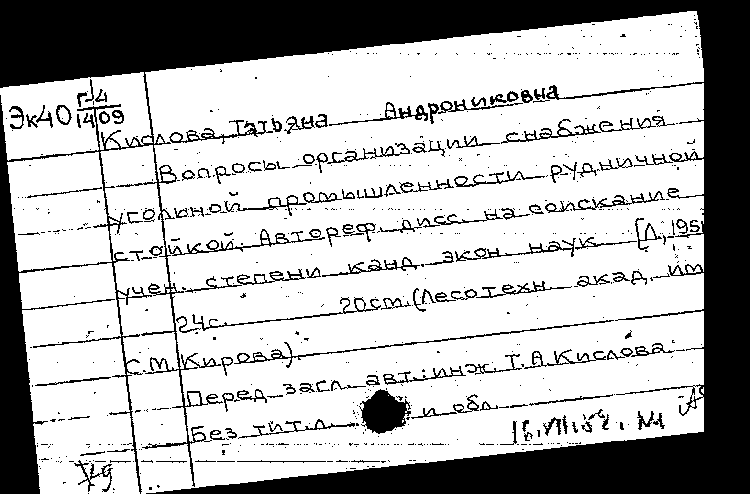 Эк40 Г-4
14 09
Кислова, Татьяна Андрониковна
Вопросы организации снабжения
угольной промышленности рудничной
стойкой. Автореф. дисс. на соискание
учен. степени канд. экон. наук [Л., 1951
24с. 20см. (Лесотехн. акад. им
С.М. Кирова).
Перед загл. авт.: инж. Т.А. Кислова.
Без тит. л. и обл.
16.VII.52. №1